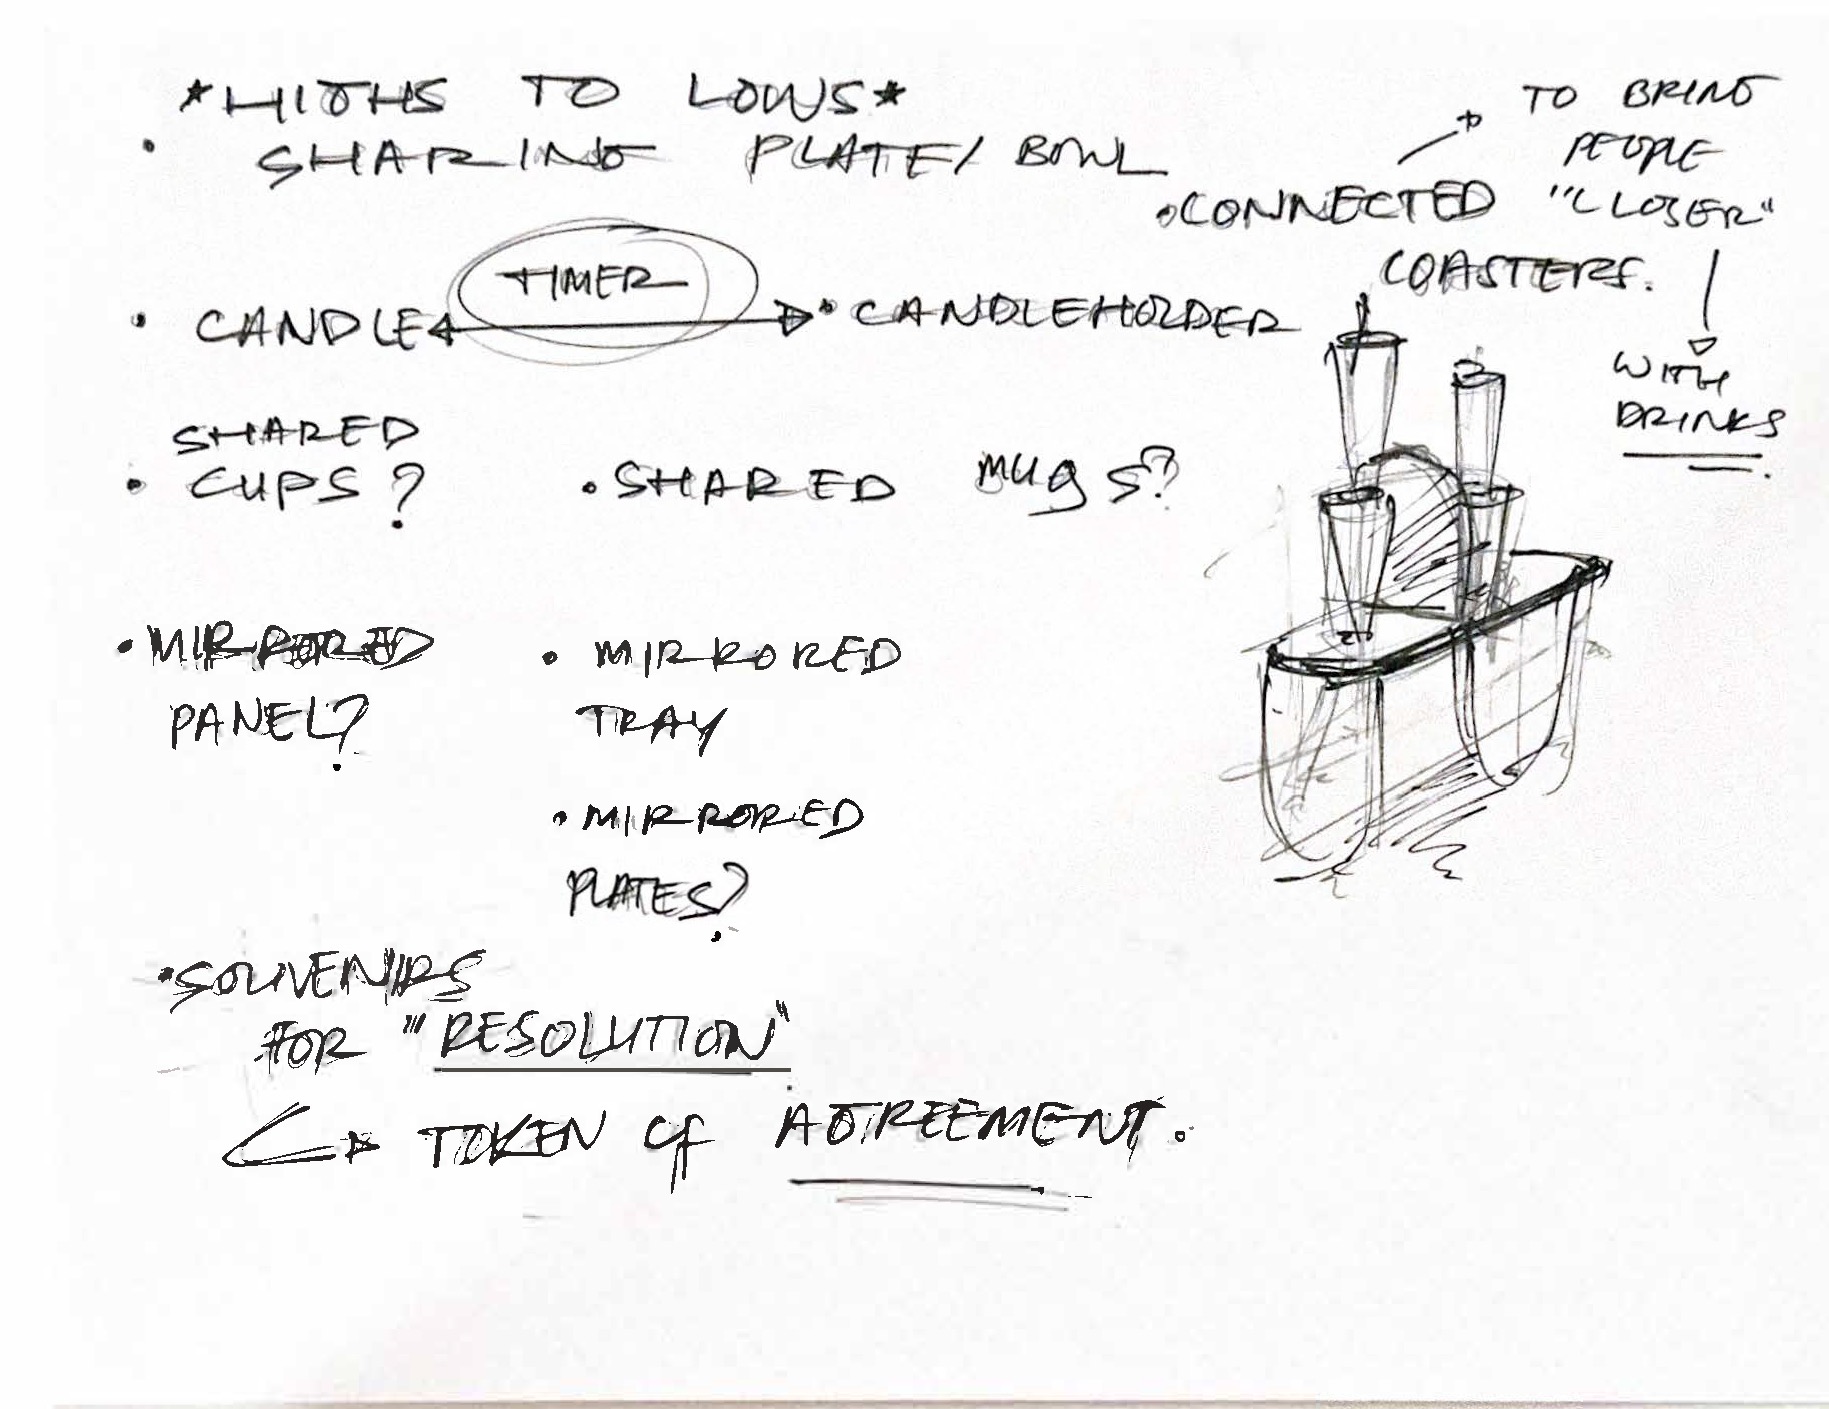 *HIGHS TO LOWS*
• SHARING PLATE/BOWL
• CONNECTED COASTERS.
TO BRING
PEOPLE
"CLOSER"
WITH
DRINKS
TIMER
• CANDLE • CANDLEHOLDER
SHARED
• CUPS? • SHARED MUGS?
• MIRRORED
PANEL?
• MIRRORED
TRAY
• MIRRORED
PLATES?
• SOUVENIRS
FOR "RESOLUTION"
TOKEN OF AGREEMENT.